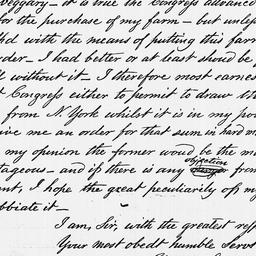 Beggary – it is true the Congress advanced
for the purchase of my farm – but unless
with the means of putting this farm
I had better or at least should be
without it – I therefore most earnes
Congress either to permit to draw
from N York whilst it is in my po
me an order for that sum in hard m
my opinion the former would be the m
tageous – and if there is any objection from
I hope the great peculiarity of my
obviate it –
I am, Sir, with the greatest resp
Your most obedt humble Serv